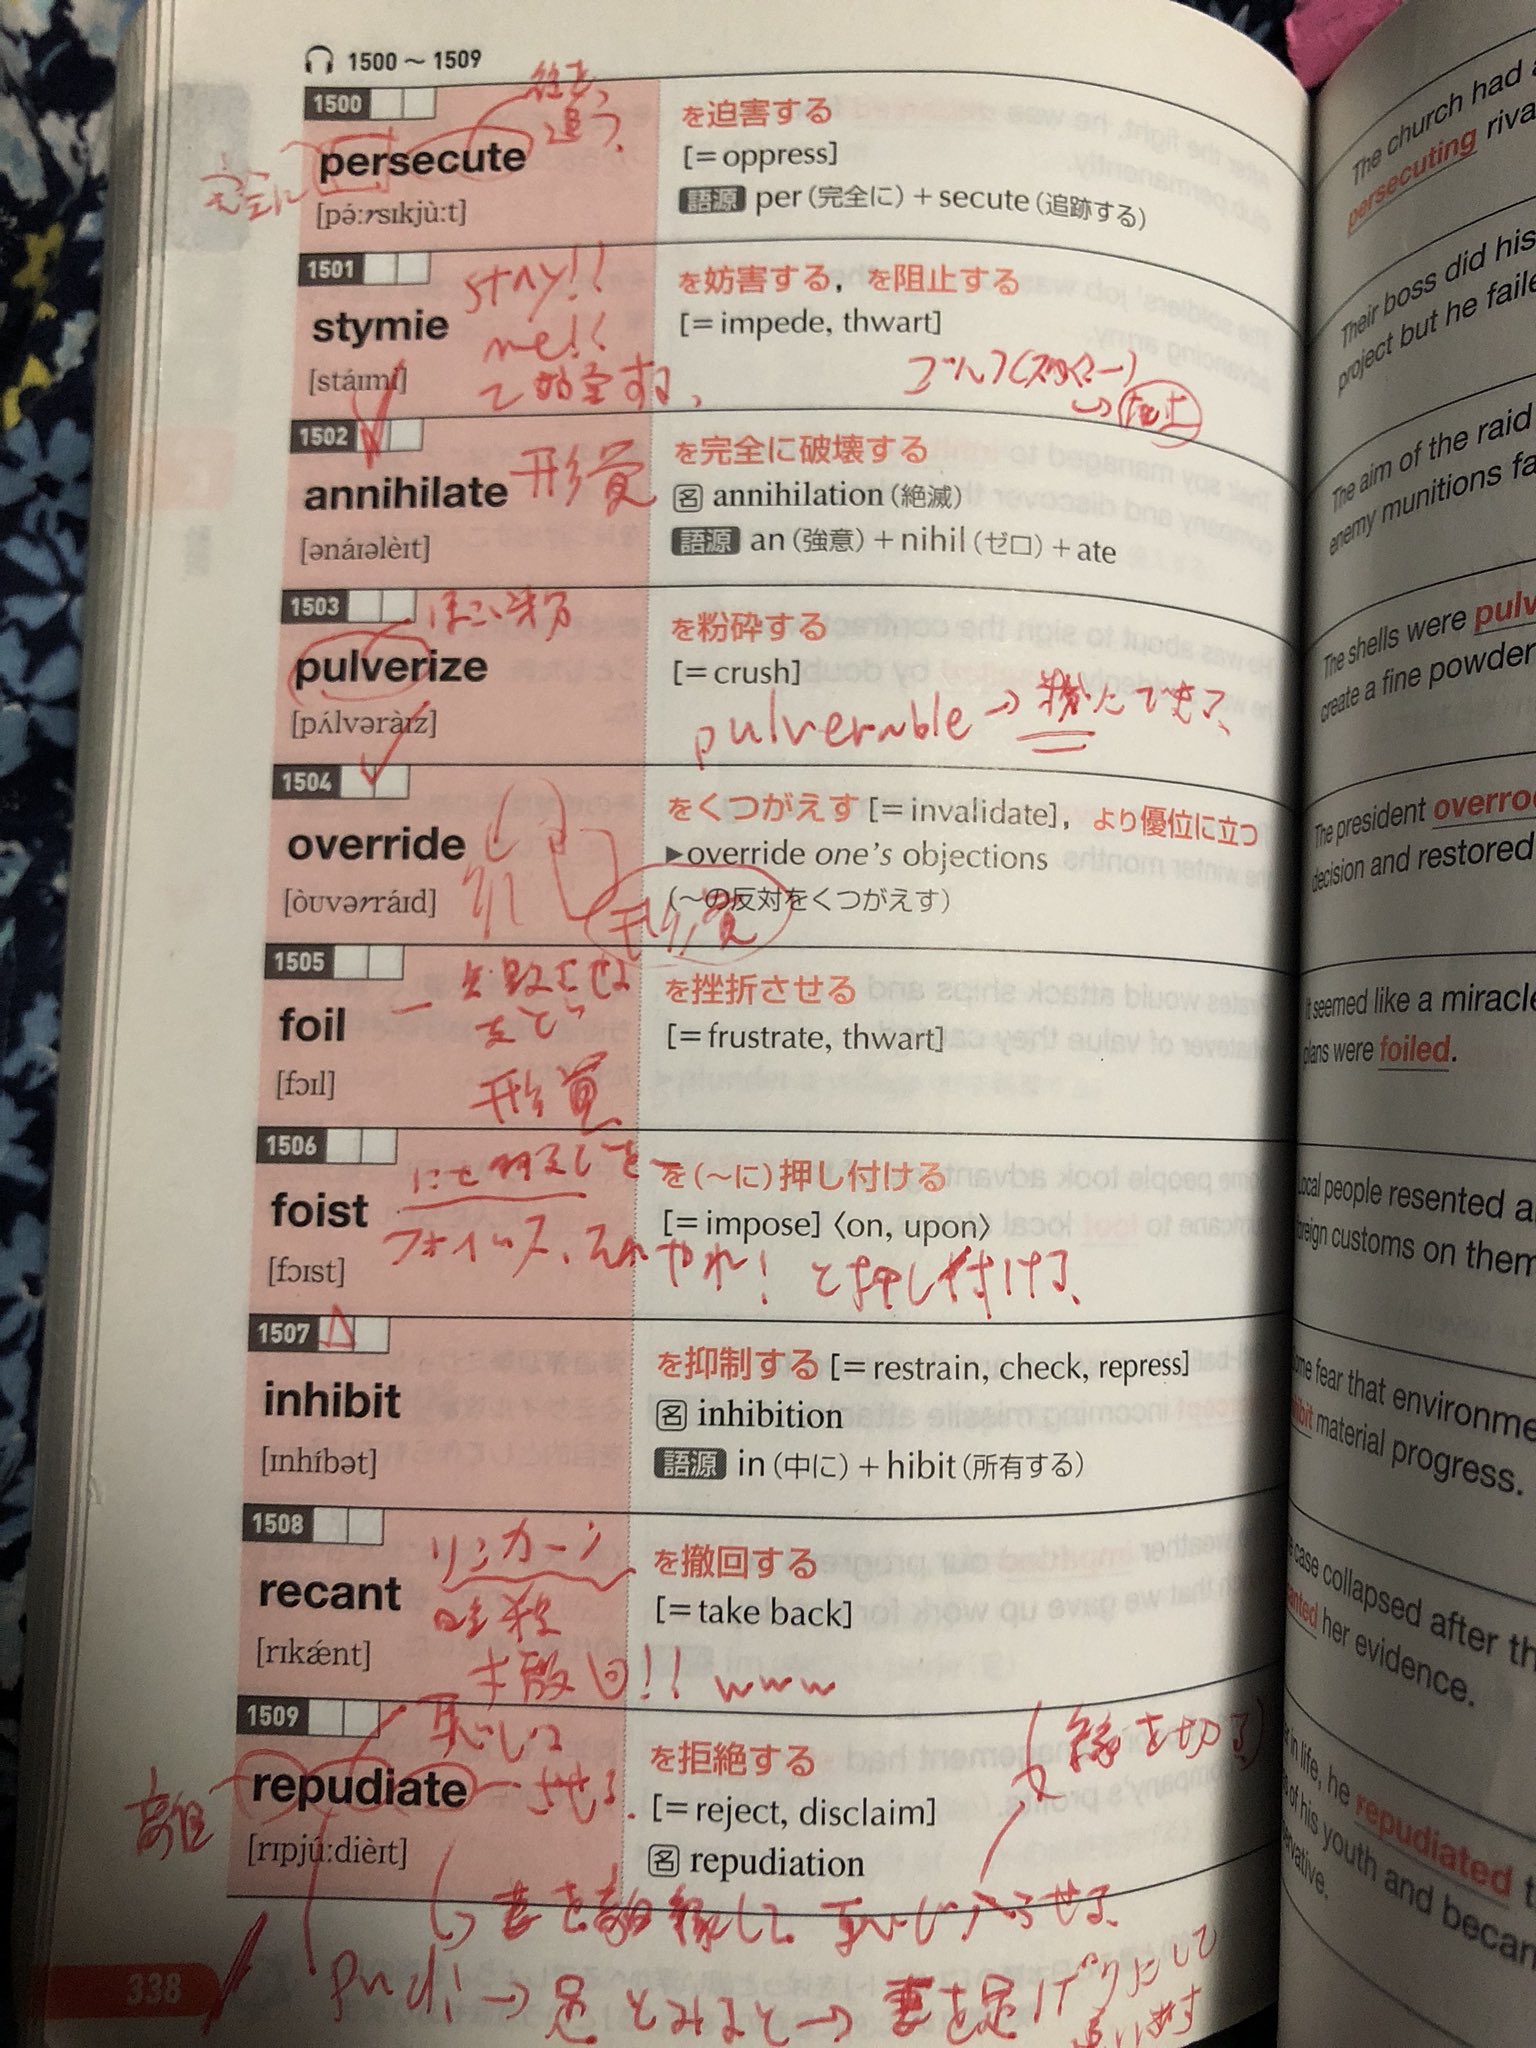 1500 ～ 1509
1500
persecute
[pə́ːrsɪkjùːt]
完全に
追う、
を迫害する
[= oppress]
語源 per (完全に) + secute (追跡する)
1501
stymie
[stáɪmi]
stay!!
me!!
で妨害する、
を妨害する，を阻止する
[= impede, thwart]
ゴルフ(スタイミー)
1502
annihilate
[ənáɪəlèɪt]
形覚
を完全に破壊する
名 annihilation (絶滅)
語源 an (強意) + nihil (ゼロ) + ate
1503
pulverize
[pʌ́lvəràɪz]
を粉砕する
[= crush]
pulverable → 粉にできる、
1504
override
[òʊvərráɪd]
形覚
をくつがえす [= invalidate]，より優位に立つ
▶override one's objections
(～の反対をくつがえす)
1505
foil
[fɔɪl]
形覚
を挫折させる
[= frustrate, thwart]
1506
foist
[fɔɪst]
を (～に) 押し付ける
[= impose] 〈on, upon〉
やれ！と押し付ける、
1507
△
inhibit
[ɪnhíbət]
を抑制する [= restrain, check, repress]
名 inhibition
語源 in (中に) + hibit (所有する)
1508
recant
[rɪkǽnt]
リンカーン
暗殺
を撤回する
[= take back]
撤回!! www
1509
repudiate
[rɪpjúːdièɪt]
離
を拒絶する
[= reject, disclaim]
名 repudiation
(縁を切る)
↳ 妻を離縁して恥じ入らせる、
pudi → 足とみると → 妻を足げりにして
追い出す
338
The church had a
persecuting riva
Their boss did his
project but he faile
The aim of the raid
enemy munitions fa
The shells were pulv
create a fine powder
The president overro
decision and restored
It seemed like a miracle
plans were foiled.
ocal people resented a
foreign customs on them
ome fear that environme
hibit material progress.
case collapsed after th
anted her evidence.
r in life, he repudiated t
s of his youth and becan
servative.